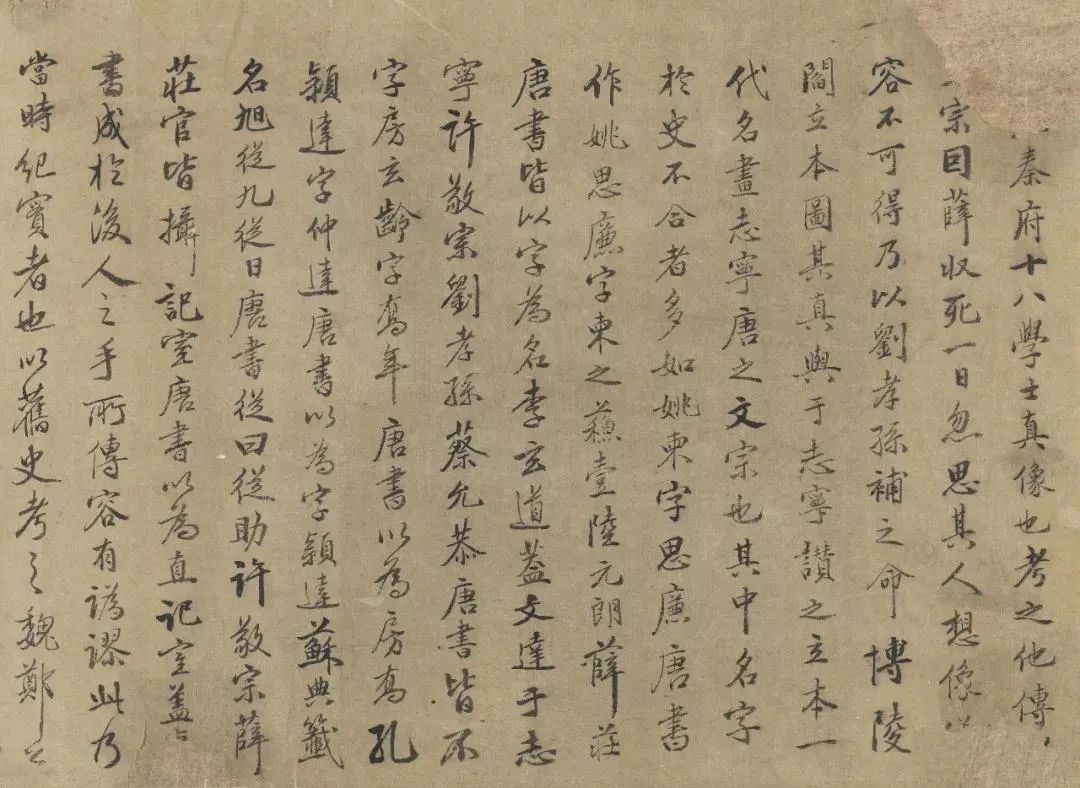 秦府十八學士真像也考之他傳
宗因薛収死一日忽思其人想像
容不可得乃以劉孝孫補之命博陵
閻立本圖其真與于志寧讃之立本一
代名畫志寧唐之文宗也其中名字
於史不合者多如姚柬字思廉唐書
作姚思廉字柬之蘇壹陸元朗薛莊
唐書皆以字為名李玄道蓋文達于志
寧許敬宗劉孝孫蔡允恭唐書皆不
字房玄齡字喬年唐書以為房喬孔
穎達字仲達唐書以為字穎達蘇典籤
名旭從九從日唐書從曰從助許敬宗薛
莊官皆攝記室唐書以為直記室蓋
書成於後人之手所傳容有譌謬此乃
當時紀實者也以舊史考之魏鄭公